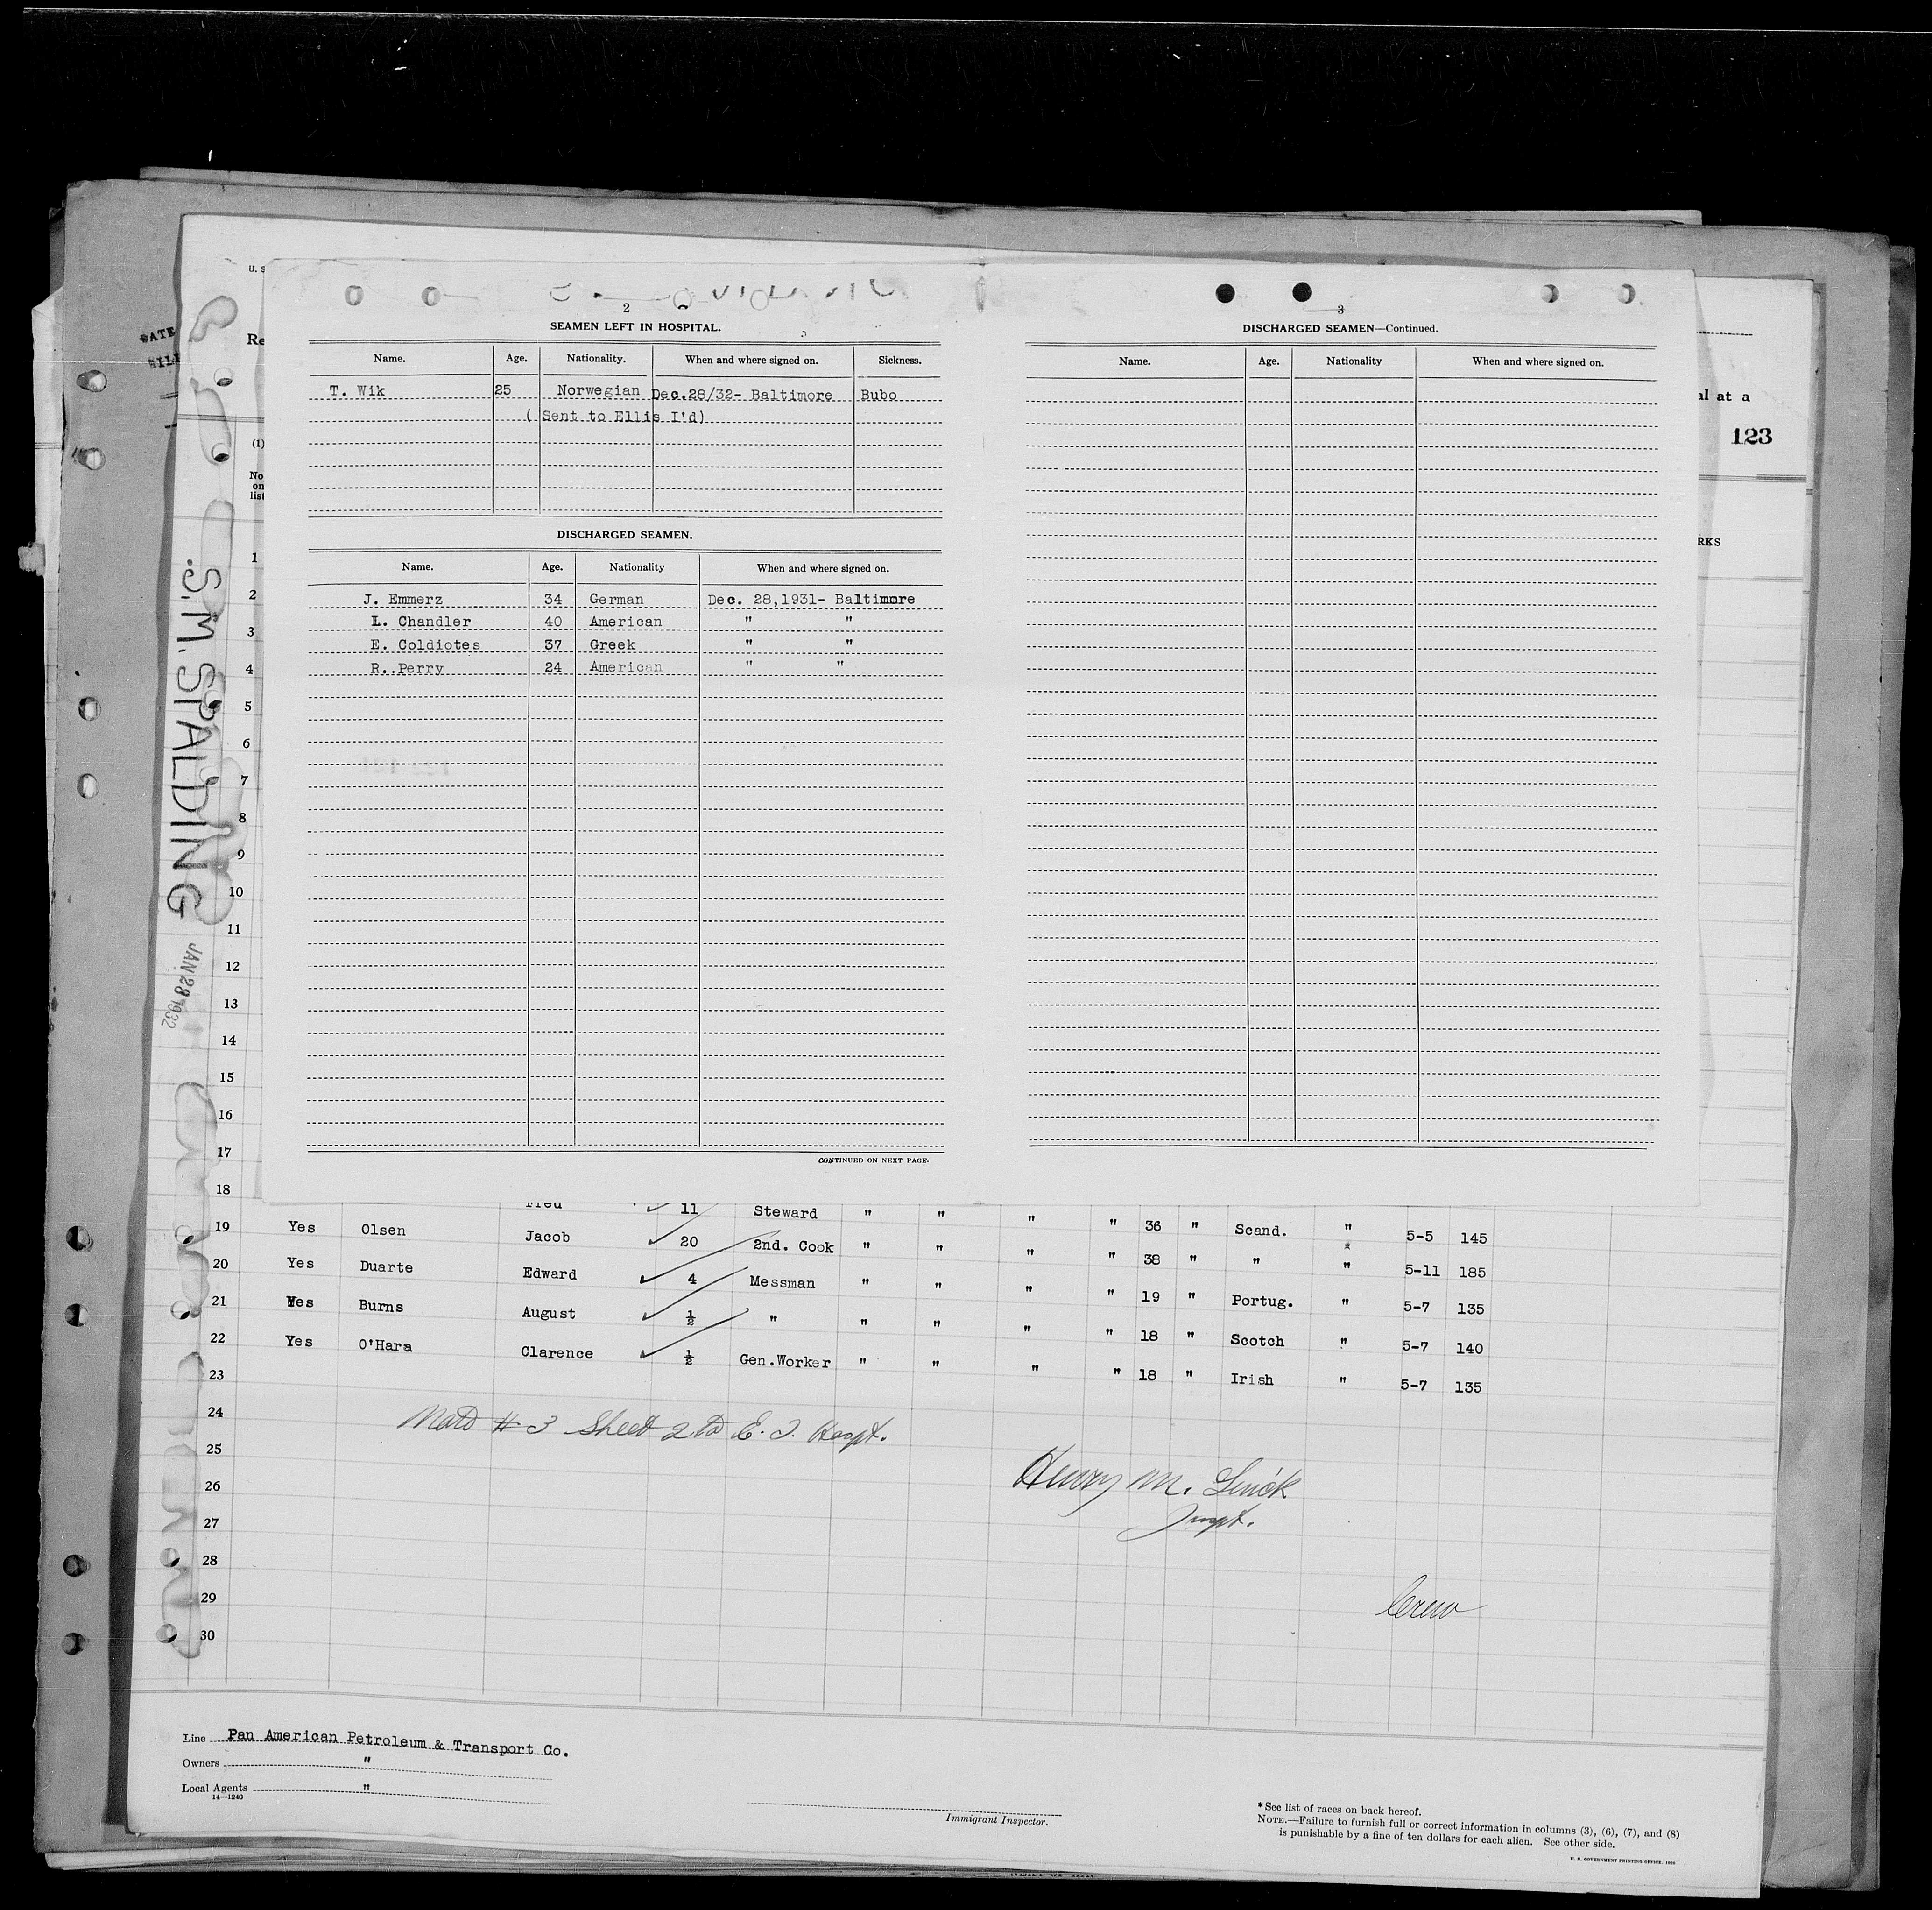 U. S
DATE
Re
(1)
No
on
list
S.M. SPALDING
JAN 28 1932
2
SEAMEN LEFT IN HOSPITAL.
Name. Age. Nationality. When and where signed on. Sickness.
T. Wik 25 Norwegian Dec.28/32- Baltimore Bubo
( Sent to Ellis I'd)
DISCHARGED SEAMEN.
Name. Age. Nationality When and where signed on.
J. Emmerz 34 German Dec. 28,1931- Baltimore
L. Chandler 40 American " "
E. Coldiotes 37 Greek " "
R..Perry 24 American " "
CONTINUED ON NEXT PAGE.
3
DISCHARGED SEAMEN—Continued.
Name. Age. Nationality When and where signed on.
al at a
123
RKS
1
2
3
4
5
6
7
8
9
10
11
12
13
14
15
16
17
18
Fred 11 Steward " " " " 36 " Scand. " 5-5 145
19 Yes Olsen Jacob 20 2nd. Cook " " " " 38 " " " 5-11 185
20 Yes Duarte Edward 4 Messman " " " " 19 " Portug. " 5-7 135
21 Yes Burns August ½ " " " " " 18 " Scotch " 5-7 140
22 Yes O'Hara Clarence ½ Gen.Worker " " " " 18 " Irish " 5-7 135
23
24
# 3 Sheet 2 to E. I. Hospt.
25
Henry M.
26
Inspt.
27
28
29
Crew
30
Line Pan American Petroleum & Transport Co.
Owners "
Local Agents "
14—1240
Immigrant Inspector.
* See list of races on back hereof.
NOTE.—Failure to furnish full or correct information in columns (3), (6), (7), and (8)
is punishable by a fine of ten dollars for each alien. See other side.
U. S. GOVERNMENT PRINTING OFFICE